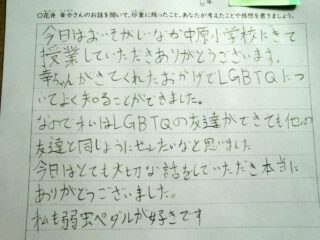 6年
○花井 幸介さんのお話を聞いて、印象に残ったこと、あなたが考えたことや感想を書きましょう。
今日はおいそがしいなか中原小学校にきて
授業していただきありがとうございます。
幸ちゃんがきてくれたおかげでLGBTQにつ
いてよく知ることができました。
なので私はLGBTQの友達ができても他の
友達と同じようにせっしたいなと思いました
今日はとても大切な話をしていただき本当に
ありがとうございました。
私も弱虫ペダルが好きです